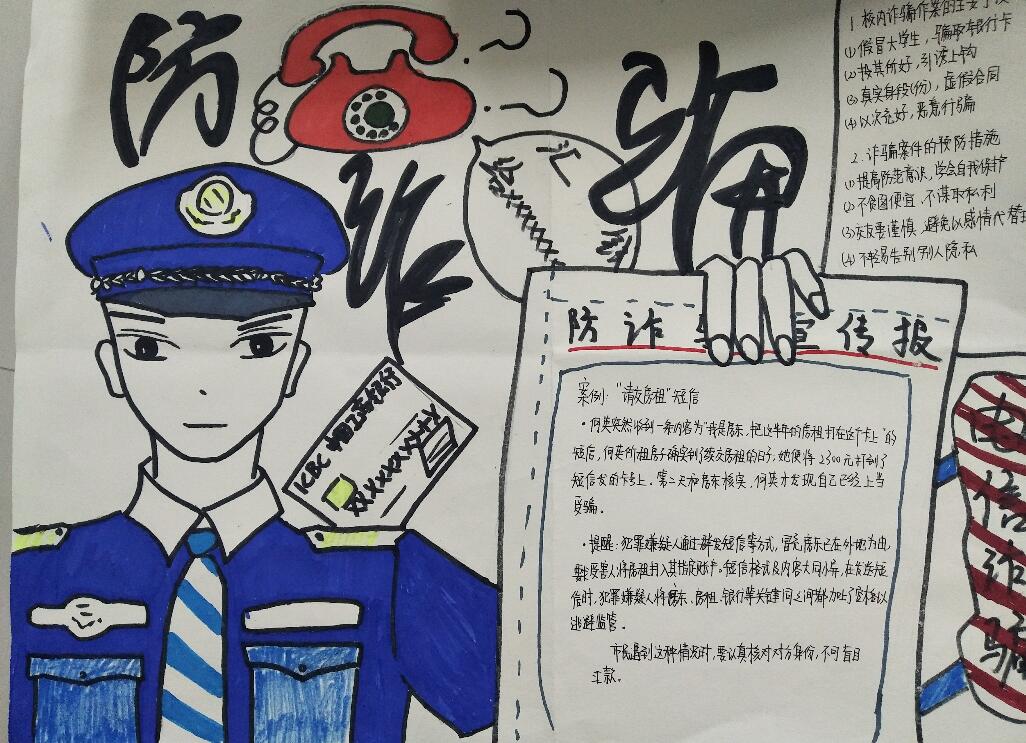 防诈骗
1. 校内诈骗作案的主要手段
(1) 假冒大学生，骗取银行卡
(2) 投其所好，引诱上钩
(3) 真实身段(份)，虚假合同
(4) 以次充好，恶意行骗
2. 诈骗案件的预防措施
(1) 提高防范意识，学会自我保护
(2) 不贪图便宜，不谋取私利
(3) 交友要谨慎，避免以感情代替
(4) 不轻易告别别人隐私
防诈 宣传报
案例："请交房租"短信
·何英突然收到一条内容为"我是房东，把这半年的房租打在这个卡上"的
短信，何英所租房子确实到了要交房租的日子，她便将2300元打到了
短信发的卡号上。第二天和房东核实，何英才发现自己已经上当
受骗。
·提醒：犯罪嫌疑人通过群发短信等方式，冒充房东已在外地为由，
要求受害人将房租打入其指定账户。短信格式及内容大同小异，在发送短
信时，犯罪嫌疑人将房东、房租、银行等关键词之间都加上了空格以
逃避监管。
市民遇到这种情况时，要认真核对对方身份，不可盲目
汇款。
KBC 中国工商银行
XXXXXXXX
电信诈骗